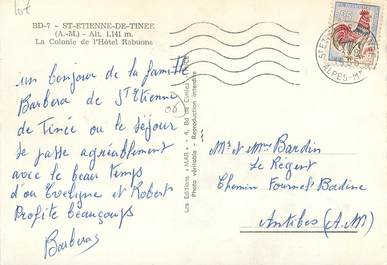 lot
BD-7 - ST-ETIENNE-DE-TINEE
(A.-M.) - Alt. 1.141 m.
La Colonie de l'Hôtel Rabuons
un bonjour de la famille
Barbera de St Etienne
(06)
de Tinée ou le séjour
se passe agréablement
avec le beau temps
d'ou Evelyne et Robert
Profite beaucoups
Barberas
Les Editions « MAR » - 4, Bd de Cimiez
Photo véritable - Reproduction interdite
ALPES-M
Mr et Mme Bardin
Le Régent
Chemin Fournel Badine
Antibes (A.M)